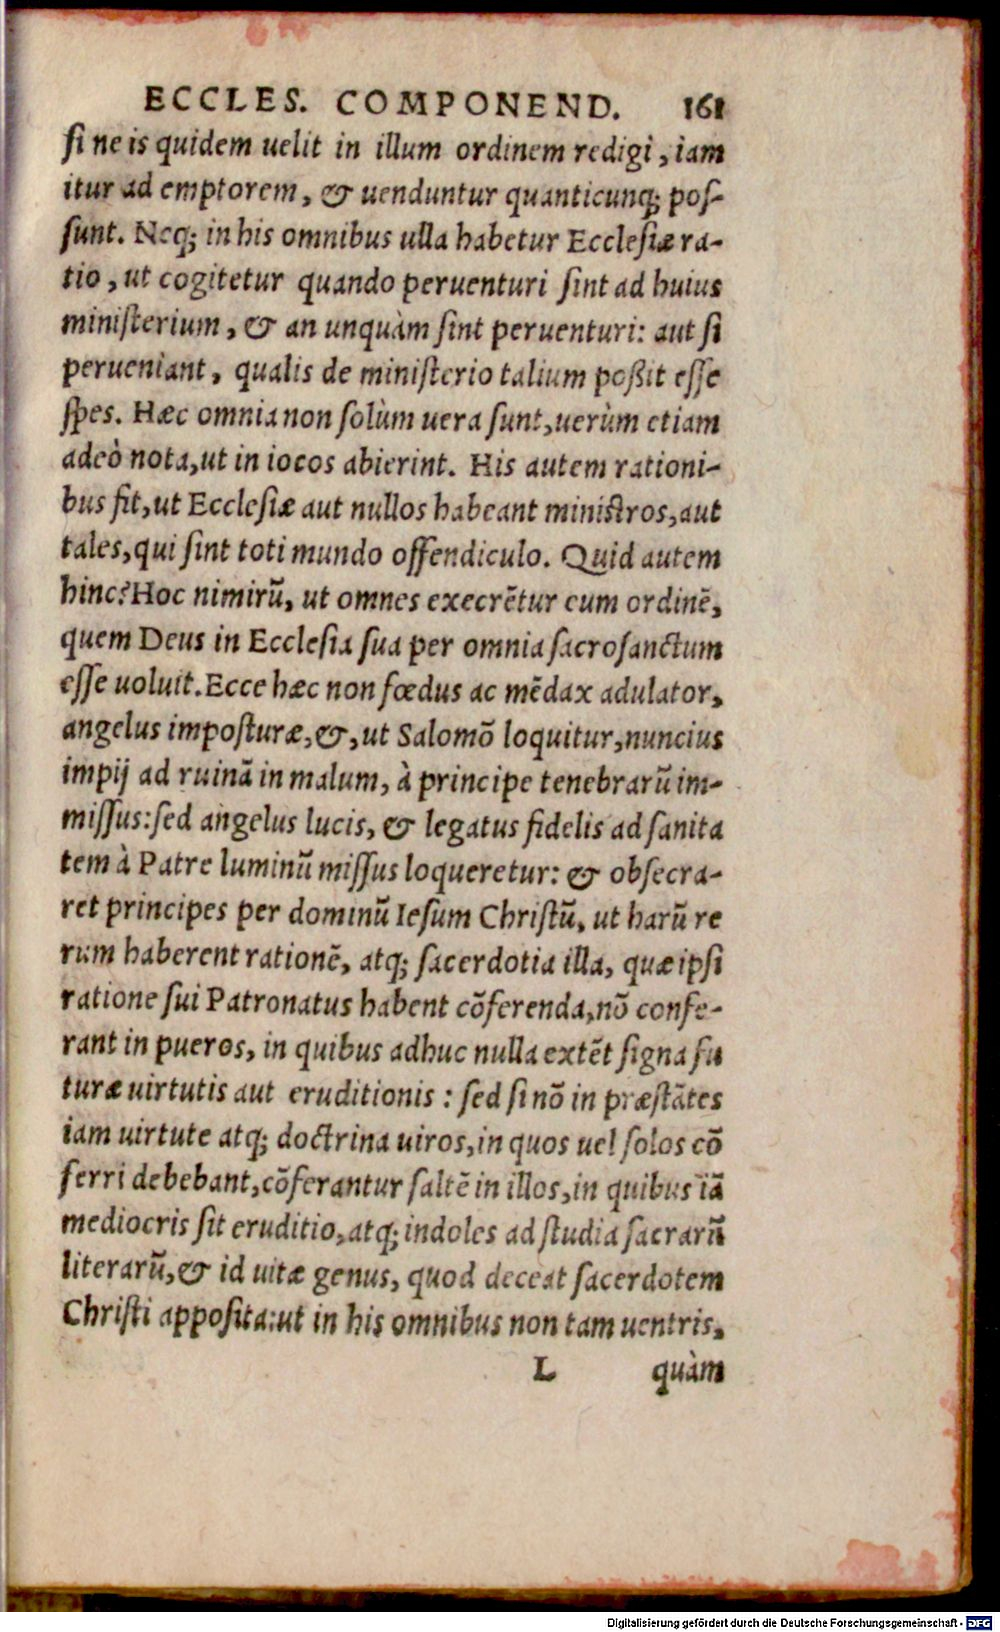 ECCLES. COMPONEND. 161
si ne is quidem uelit in illum ordinem redigi, iam
itur ad emptorem, & uenduntur quanticunq; pos-
sunt. Neq; in his omnibus ulla habetur Ecclesiæ ra-
tio, ut cogitetur quando peruenturi sint ad huius
ministerium, & an unquàm sint peruenturi: aut si
perueniant, qualis de ministerio talium poßit esse
spes. Hæc omnia non solùm uera sunt, uerùm etiam
adeò nota, ut in iocos abierint. His autem rationi-
bus fit, ut Ecclesiæ aut nullos habeant ministros, aut
tales, qui sint toti mundo offendiculo. Quid autem
hinc? Hoc nimirũ, ut omnes execrẽtur eum ordinẽ,
quem Deus in Ecclesia sua per omnia sacrosanctum
esse uoluit. Ecce hæc non fœdus ac mẽdax adulator,
angelus imposturæ, &, ut Salomõ loquitur, nuncius
impij ad ruinã in malum, à principe tenebrarũ im-
missus: sed angelus lucis, & legatus fidelis ad sanita
tem à Patre luminũ missus loqueretur: & obsecra-
ret principes per dominũ Iesum Christũ, ut harũ re
rum haberent rationẽ, atq; sacerdotia illa, quæ ipsi
ratione sui Patronatus habent cõferenda, nõ confe-
rant in pueros, in quibus adhuc nulla extẽt signa fu
turæ uirtutis aut eruditionis : sed si nõ in præstãtes
iam uirtute atq; doctrina uiros, in quos uel solos cõ
ferri debebant, cõferantur saltẽ in illos, in quibus iã
mediocris sit eruditio, atq; indoles ad studia sacrarũ
literarũ, & id uitæ genus, quod deceat sacerdotem
Christi apposita: ut in his omnibus non tam uentris,
L quàm
Digitalisierung gefördert durch die Deutsche Forschungsgemeinschaft - DFG